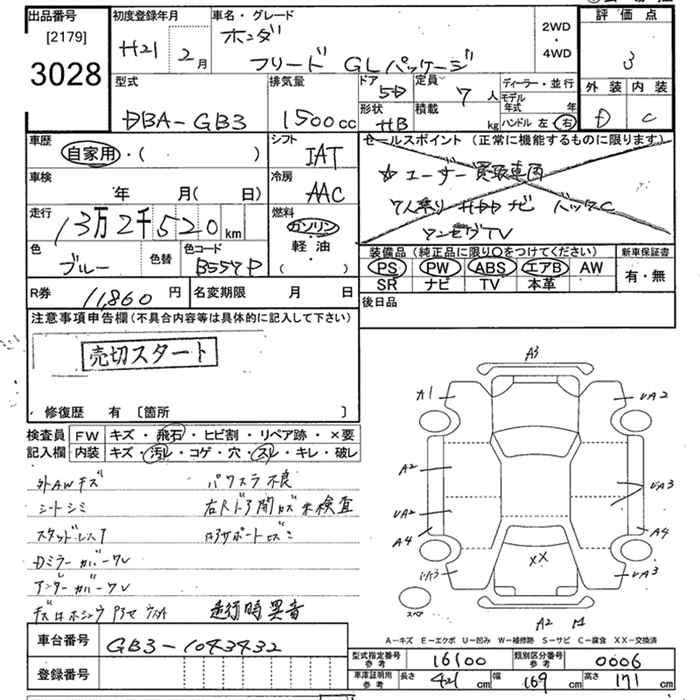 出品番号 初度登録年月 車名・グレード 評価点
[2179]
3028
H21 2月
ホンダ
フリード GLパッケージ
2WD
・
4WD
3
型式 排気量 ドア 定員 ディーラー・並行 外装 内装
DBA-GB3 1500cc 5D 7人 モデル年式 年
形状 積載 kg ハンドル 左 右
HB
D C
車歴 自家用・( )
シフト IAT
セールスポイント (正常に機能するものに限ります)
☆ユーザー買取車両
7人乗り HDDナビ バックC
ワンセグTV
車検 年 月(日)
冷房 AAC
走行 13万2千520km
燃料 ガソリン
軽油
( )
色 ブルー 色替 色コード B557P
装備品 (純正品に限り○をつけてください) 新車保証書
PS PW ABS エアB AW
SR ナビ TV 本革
有・無
R券 11,860円 名変期限 月 日
後日品
注意事項申告欄(不具合内容等は具体的に記入して下さい)
売切スタート
修復歴 有 [箇所 ]
検査員 FW キズ・飛石・ヒビ割・リペア跡・×要
記入欄 内装 キズ・汚レ・コゲ・穴・スレ・キレ・破レ
外AWキズ パワスラ不良
シートシミ
未検査
スタッドレス
走行時異音
A3
A2
A2
A4
A4
XX
スペア
A2
A-キズ E-エクボ U-凹み W-補修跡 S-サビ C-腐食 XX-交換済
車台番号 GB3-1043432
登録番号
型式指定番号 参考 16100 類別区分番号 参考 0006
車庫証明用 参考 長さ 421cm 幅 169cm 高さ 171cm